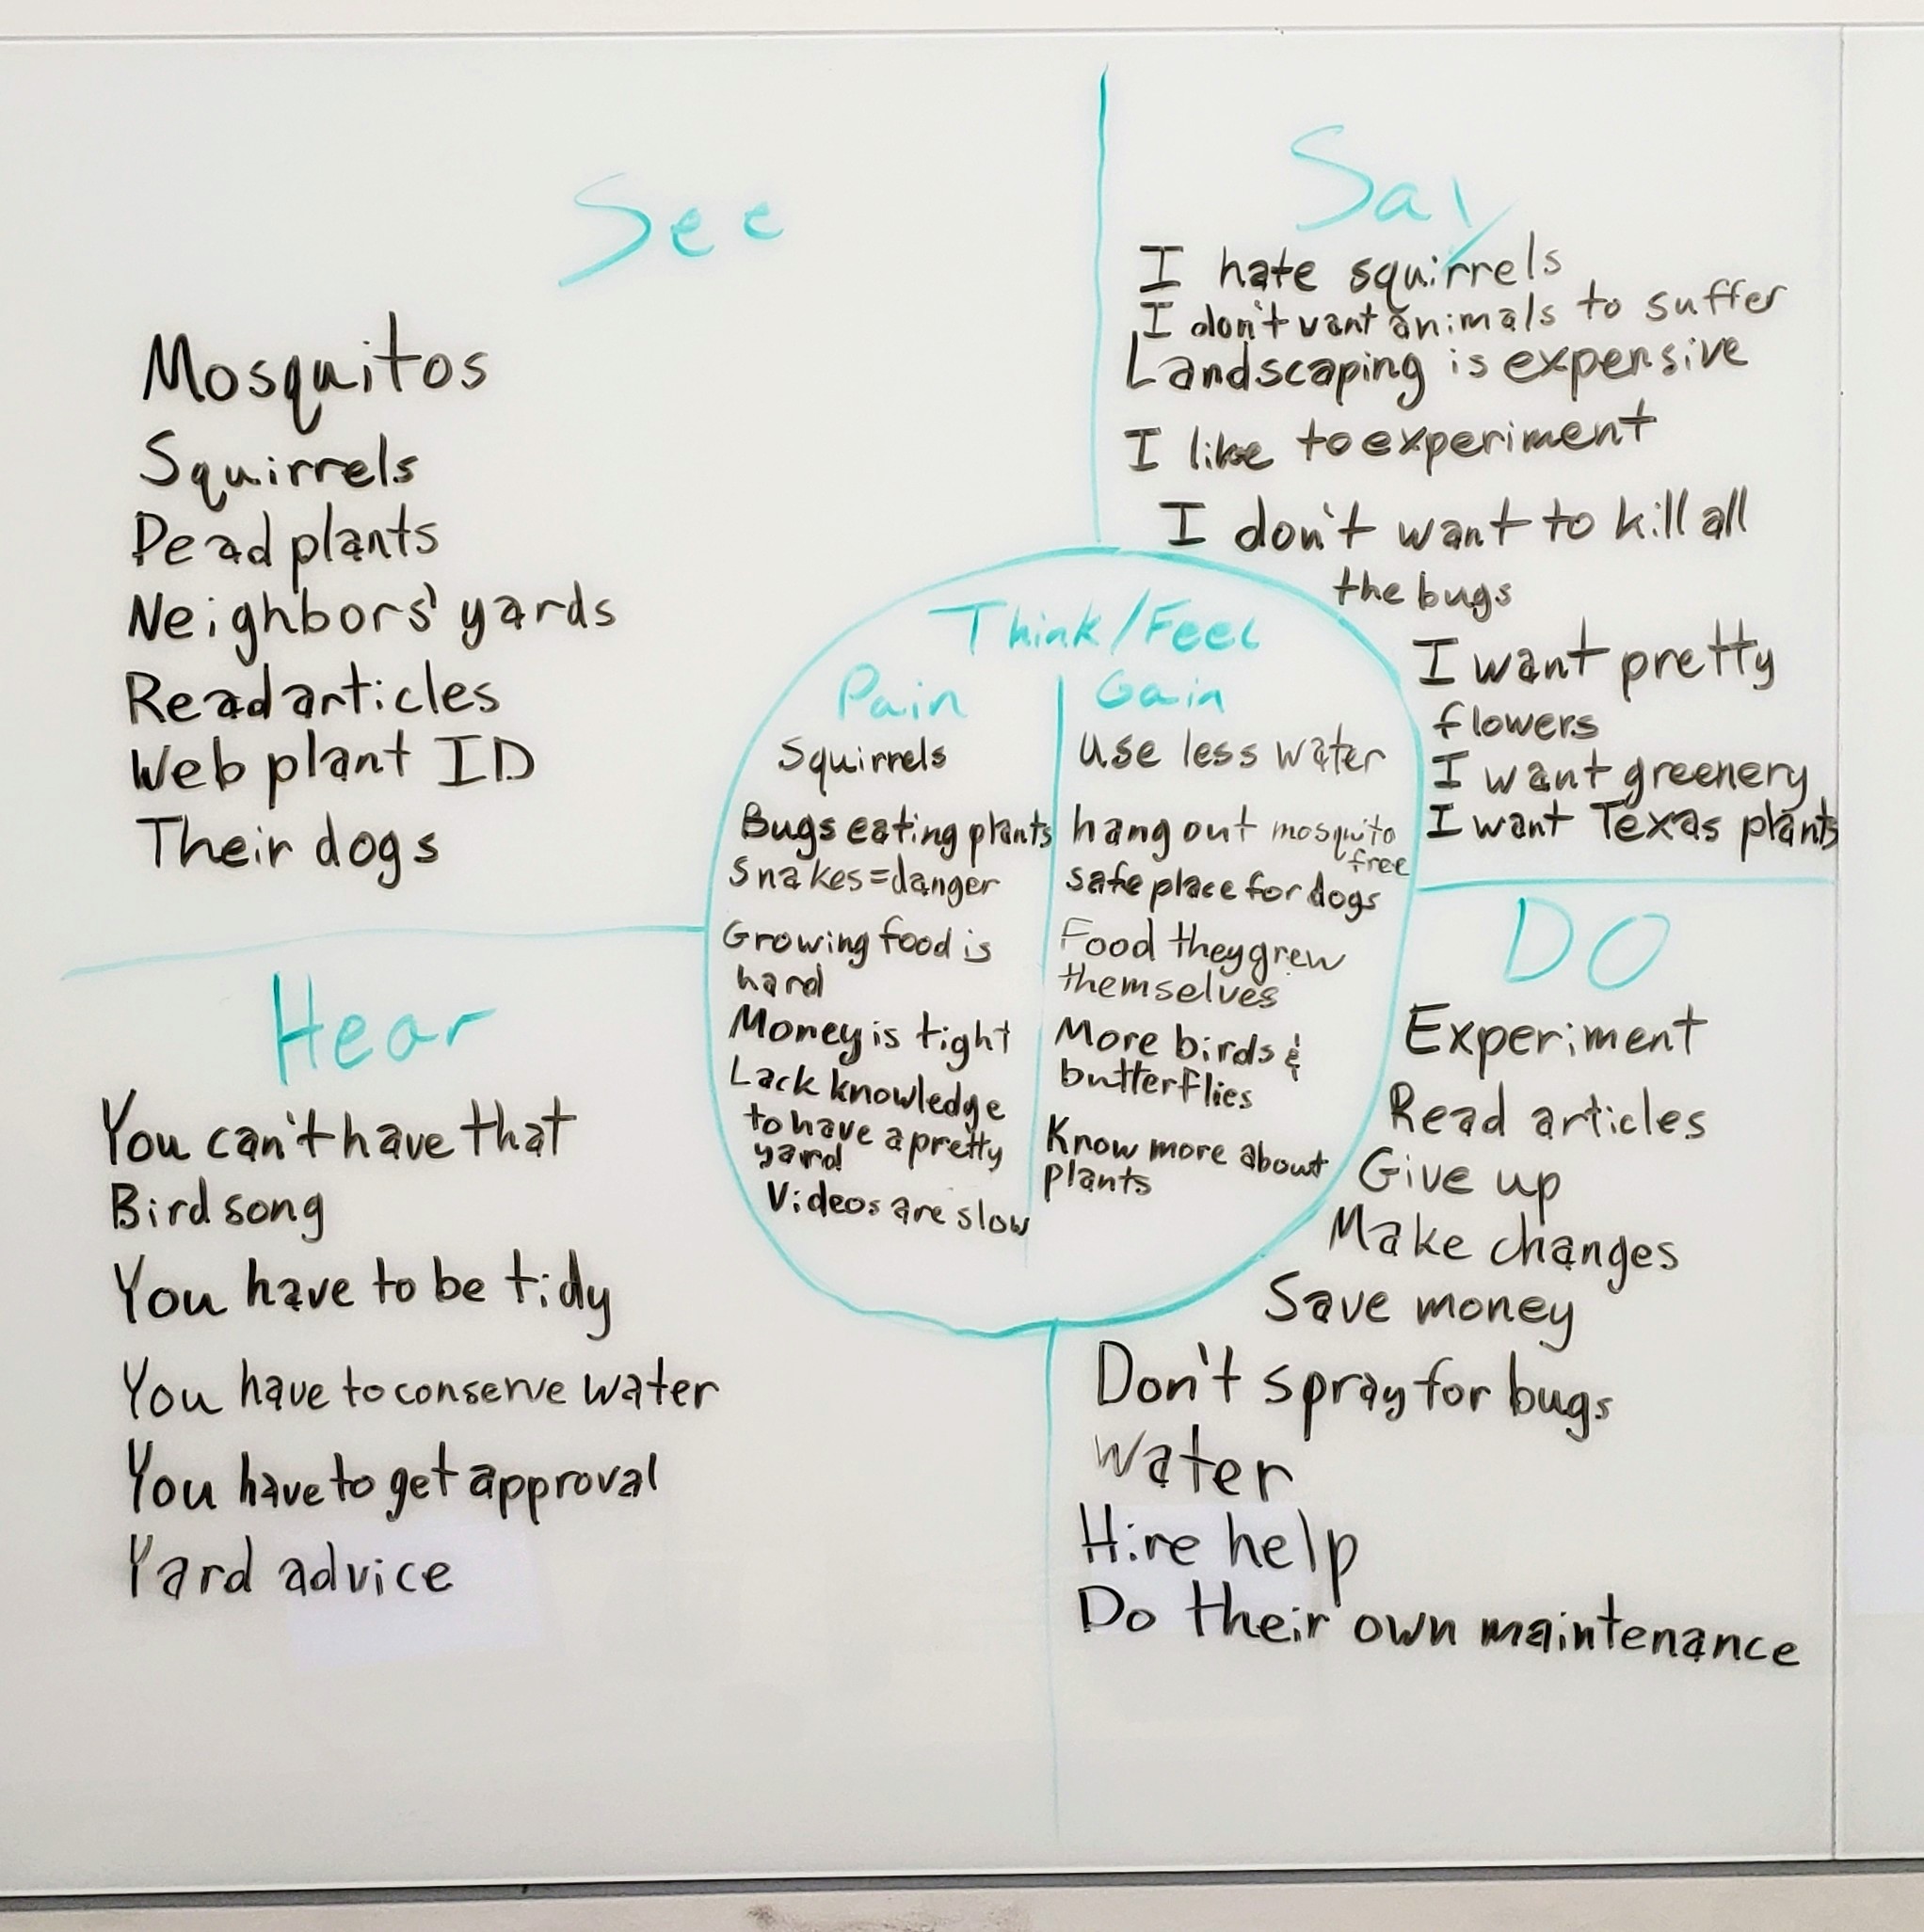 See
Mosquitos
Squirrels
Dead plants
Neighbors' yards
Read articles
Web plant ID
Their dogs
Say
I hate squirrels
I don't want animals to suffer
Landscaping is expensive
I like to experiment
I don't want to kill all
the bugs
I want pretty
flowers
I want greenery
I want Texas plants
Think/Feel
Pain
Squirrels
Bugs eating plants
Snakes=danger
Growing food is
hard
Money is tight
Lack knowledge
to have a pretty
yard
Videos are slow
Gain
use less water
hang out mosquito
free
safe place for dogs
Food they grew
themselves
More birds &
butterflies
Know more about
plants
Hear
You can't have that
Birdsong
You have to be tidy
You have to conserve water
You have to get approval
Yard advice
DO
Experiment
Read articles
Give up
Make changes
Save money
Don't spray for bugs
Water
Hire help
Do their own maintenance